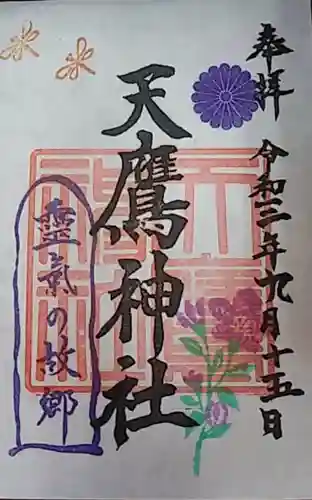 奉拝
令和三年九月十五日
天鷹神社
靈氣の故郷